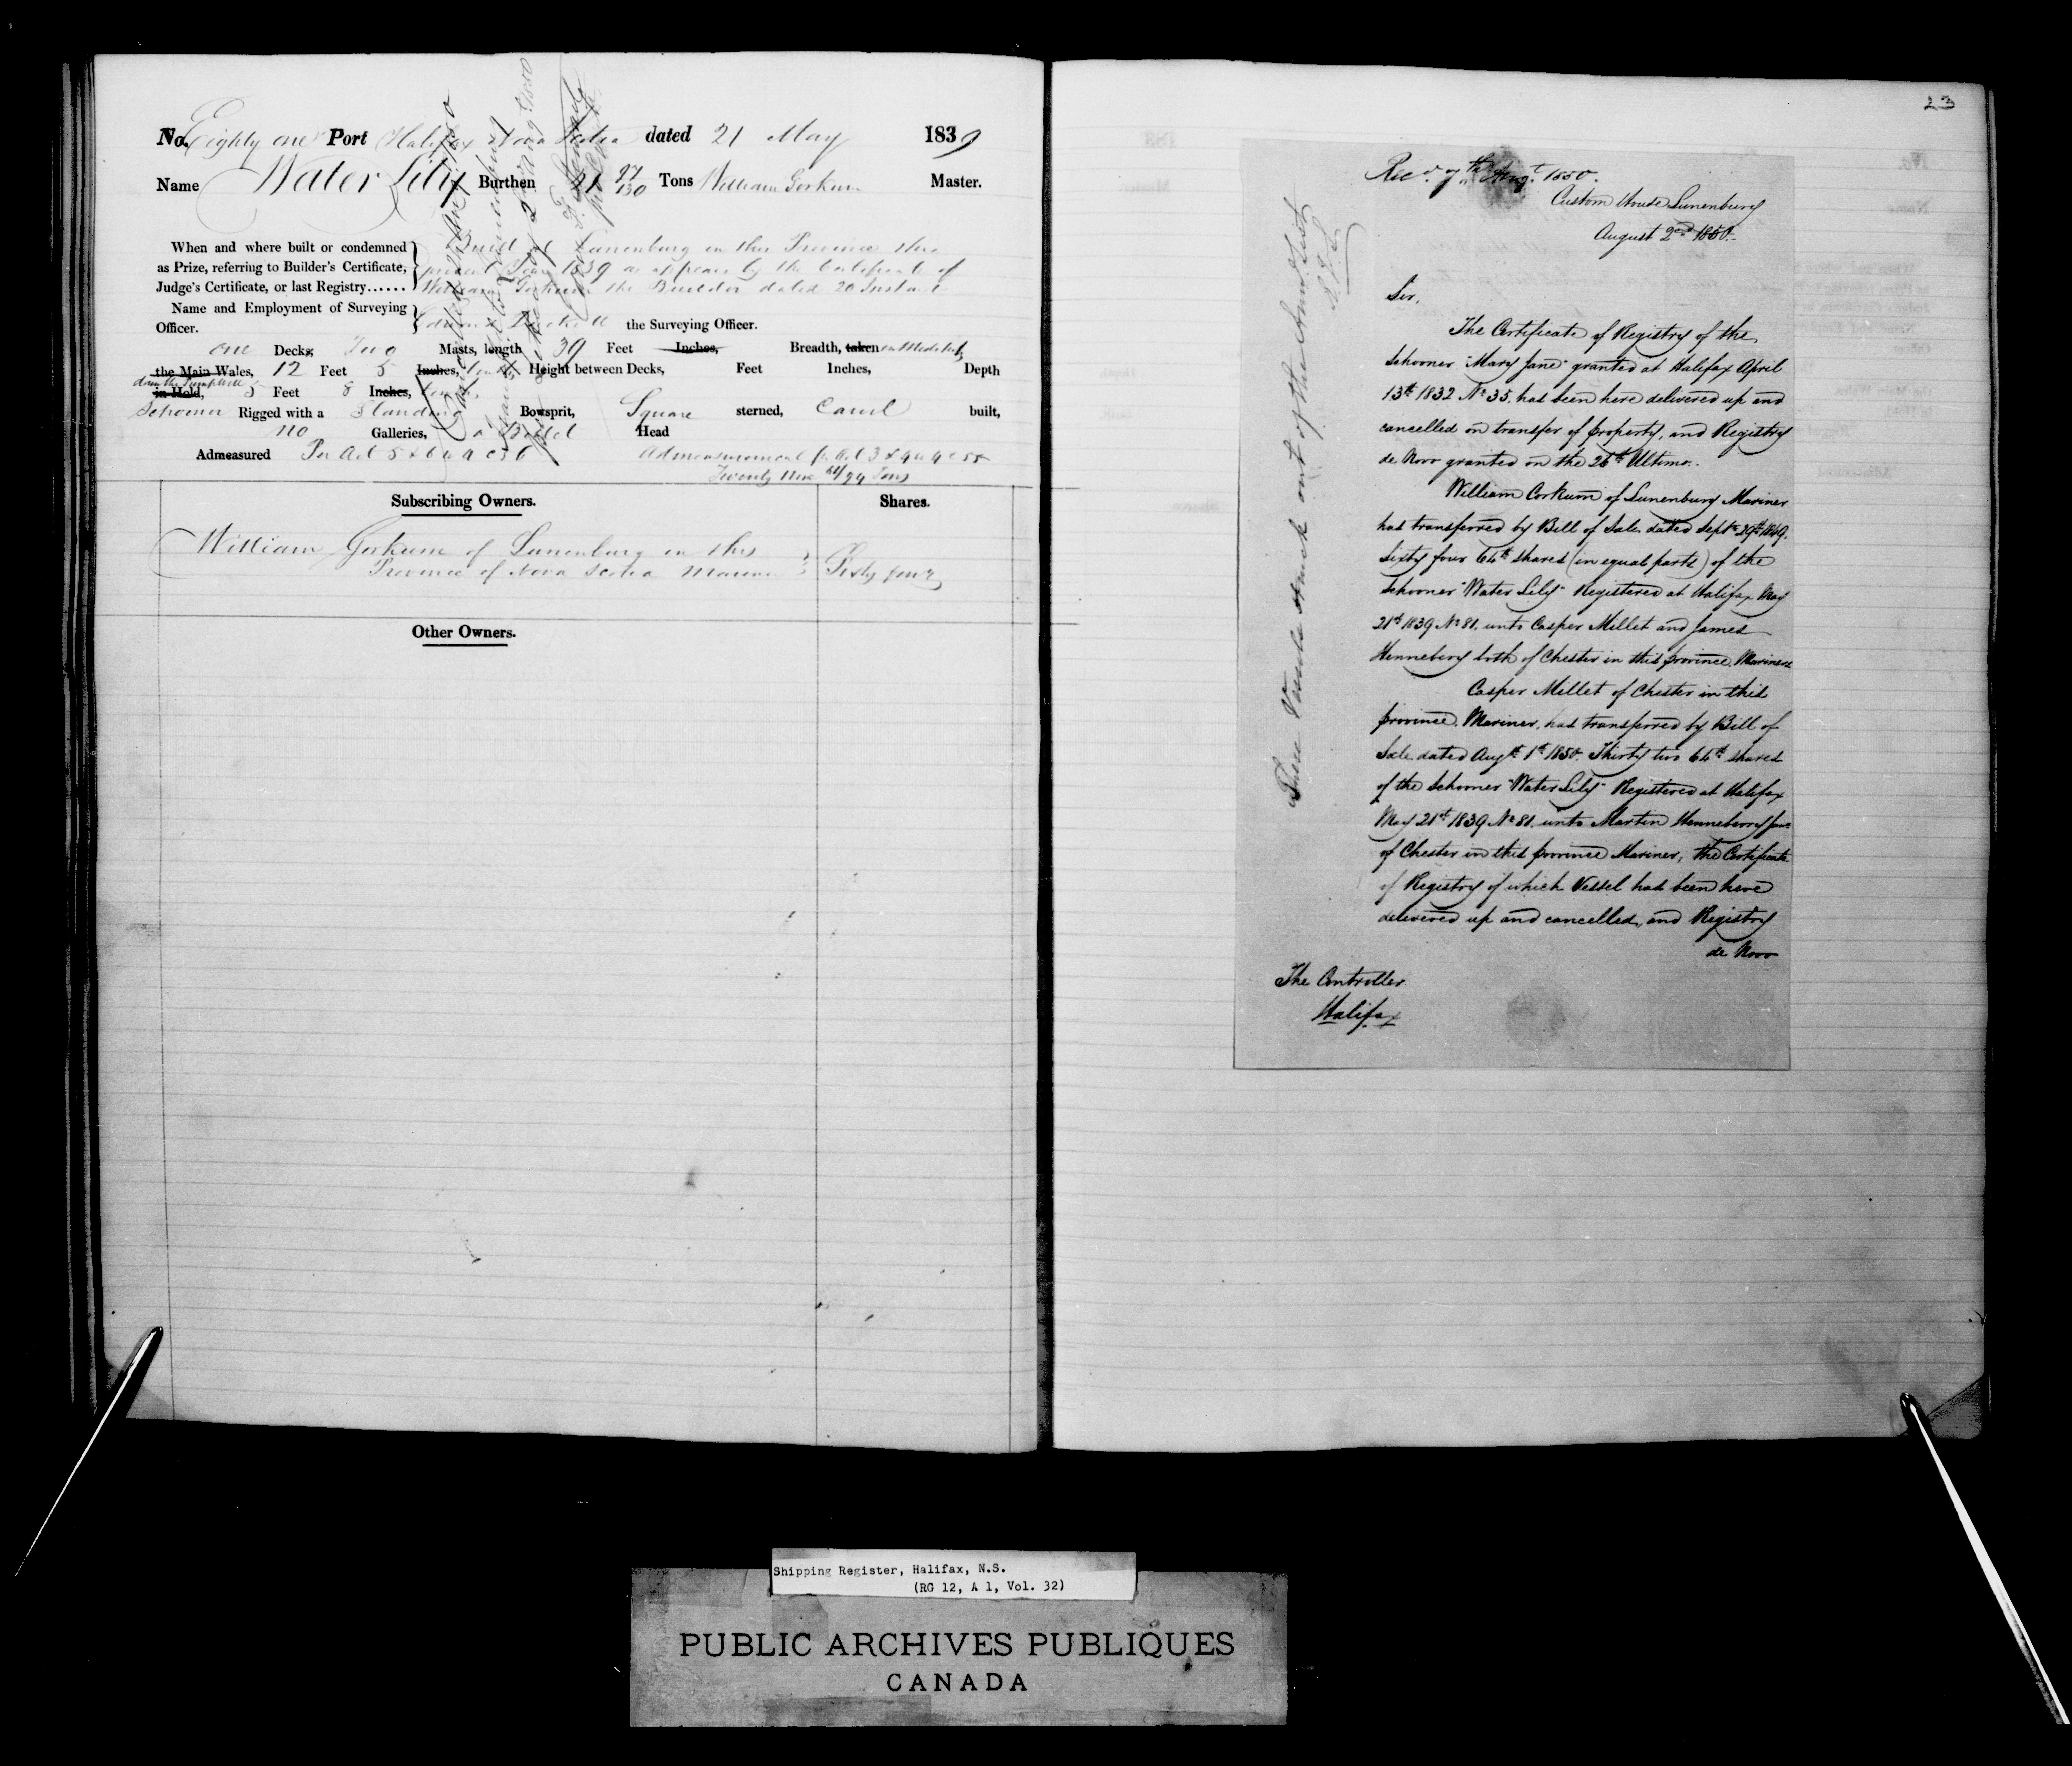 No. Eighty one Port Halifax Nova Scotia dated 21 May 1839
Name Water Lily Burthen 21 97/130 Tons William Gorkum Master.
When and where built or condemned as Prize, referring to Builder's Certificate, Judge's Certificate, or last Registry......
Build at Lunenburg in this Province this
present Year 1839 as appears by the Certificate of
William Gorkum the Builder dated 20 Instant
Name and Employment of Surveying Officer.
the Surveying Officer.
one Decks, Two Masts, length 39 Feet Inches, Breadth, taken
the Main Wales, 12 Feet 5 Inches, tenths Height between Decks, Feet Inches, Depth
in Hold, 5 Feet 8 Inches, tenths
Schooner Rigged with a Standing Bowsprit, Square sterned, Carvel built,
no Galleries, a Billet Head
Admeasured Pr Act 5 & 6 W 4 c 56 Admeasurement pr Act 3 & 4 W 4 c 55
Twenty Nine /94 Tons
Subscribing Owners. Shares.
William Gorkum of Lunenburg in this
Province of Nova Scotia Mariner Sixty four
Other Owners.
23
Recd. 7th Augt. 1850.
Custom House Lunenburg
August 2nd 1850.
Sir,
The Certificate of Registry of the
Schooner "Mary Jane" granted at Halifax April
13th 1832 No 35. has been here delivered up and
cancelled on transfer of property, and Registry
de Novo granted on the 26th Ultimo.
William Corkum of Lunenburg Mariner
has transferred by Bill of Sale dated Septr 29th 1849.
Sixty four 64th shares (in equal parts) of the
Schooner "Water Lily" Registered at Halifax May
21st 1839 No 81. unto Casper Millet and James
Hennebery both of Chester in this province Mariners
Casper Millet of Chester in this
province, Mariner, has transferred by Bill of
Sale dated Augst 1st 1850. Thirty two 64th shares
of the Schooner "Water Lily" Registered at Halifax
May 21st 1839 No 81. unto Martin Henneberry Junr
of Chester in this province Mariner, the Certificate
of Registry of which Vessel has been here
delivered up and cancelled, and Registry
de Novo
The Controller
Halifax
These Vessels struck out of the
Shipping Register, Halifax, N.S.
(RG 12, A 1, Vol. 32)
PUBLIC ARCHIVES PUBLIQUES
CANADA